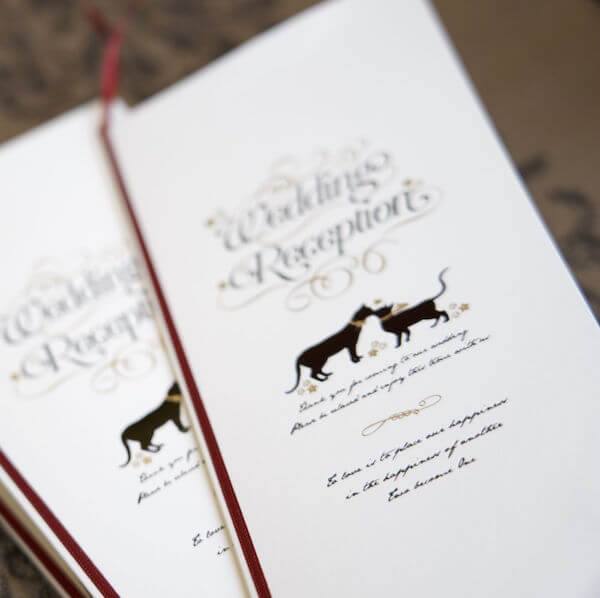 Wedding
Reception
Thank you for coming to our wedding
Please be relaxed and enjoy this time with us
To love is to place our happiness
in the happiness of another
Two become One
Wedding
Reception
Thank you for
Please be relaxed
To love
in